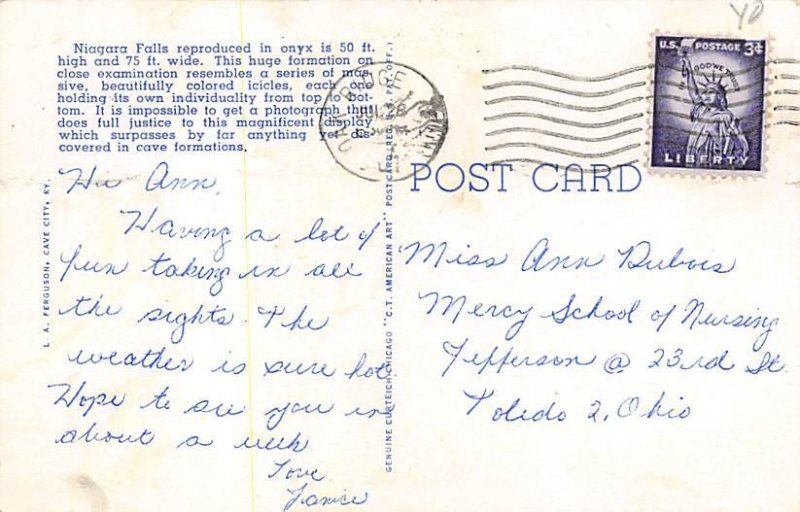 Niagara Falls reproduced in onyx is 50 ft.
high and 75 ft. wide. This huge formation on
close examination resembles a series of mas-
sive, beautifully colored icicles, each one
holding its own individuality from top to bot-
tom. It is impossible to get a photograph that
does full justice to this magnificent display
which surpasses by far anything yet dis-
covered in cave formations.
L. A. FERGUSON, CAVE CITY, KY.
Hi Ann,
Having a lot of
fun taking in all
the sights. The
weather is sure hot.
Hope to see you in
about a week.
Love
Janice
GENUINE CURTEICH-CHICAGO "C.T. AMERICAN ART" POSTCARD (REG. U.S. PAT. OFF.)
OAK RIDGE
POST CARD
U.S. POSTAGE 3¢
IN GOD WE TRUST
LIBERTY
Miss Ann Dubois
Mercy School of Nursing
Jefferson @ 23rd St.
Toledo 2, Ohio